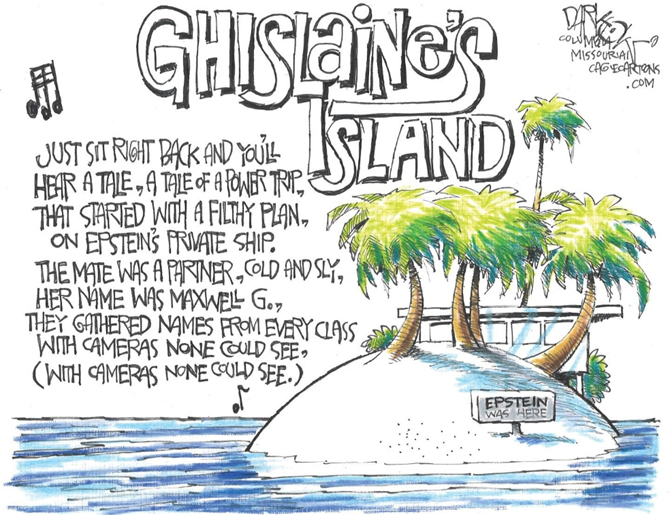 GHISLAINE'S
ISLAND
DARKOW
COLUMBIA
MISSOURIAN
CAGLECARTOONS
.COM
JUST SIT RIGHT BACK AND YOU'LL
HEAR A TALE, A TALE OF A POWER TRIP,
THAT STARTED WITH A FILTHY PLAN,
ON EPSTEIN'S PRIVATE SHIP.
THE MATE WAS A PARTNER, COLD AND SLY,
HER NAME WAS MAXWELL G.,
THEY GATHERED NAMES FROM EVERY CLASS
WITH CAMERAS NONE COULD SEE,
(WITH CAMERAS NONE COULD SEE.)
EPSTEIN
WAS HERE